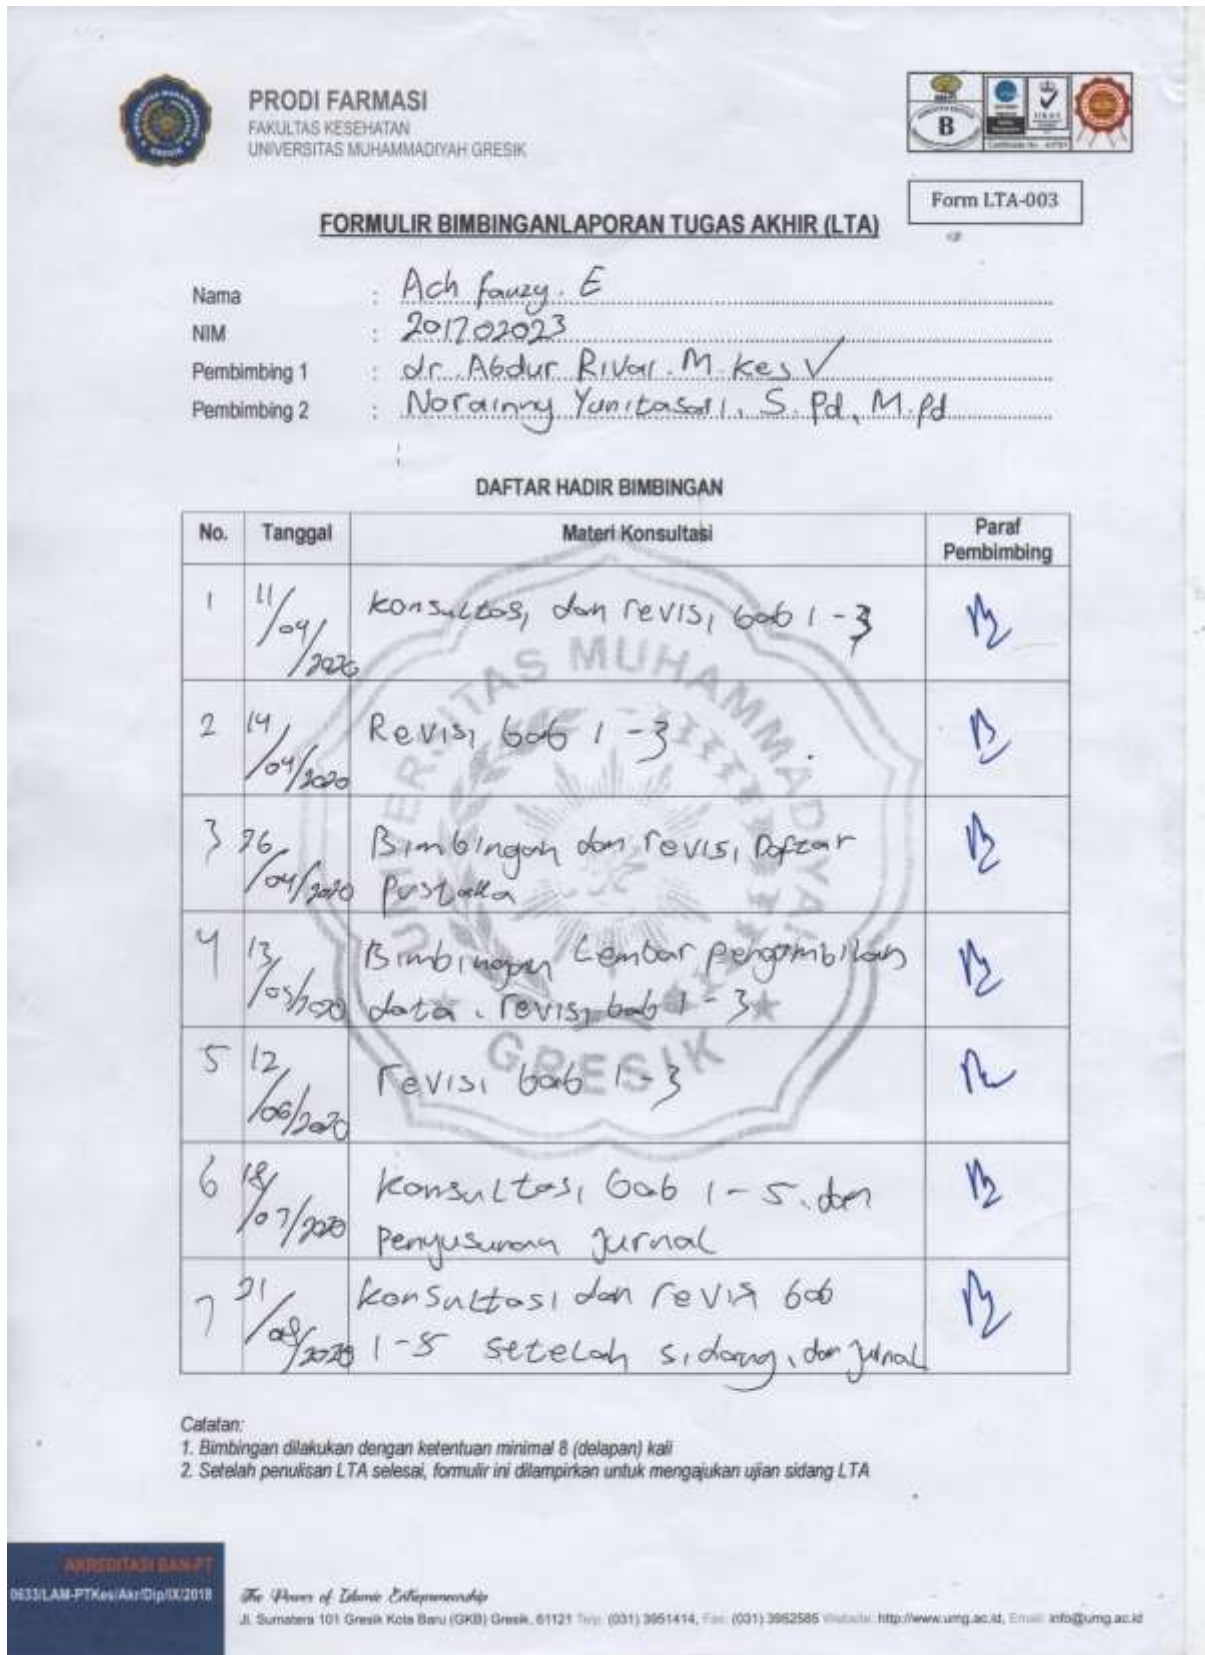 PRODI FARMASI
FAKULTAS KESEHATAN
UNIVERSITAS MUHAMMADIYAH GRESIK
B
Form LTA-003
FORMULIR BIMBINGANLAPORAN TUGAS AKHIR (LTA)
Nama : Ach fauzy. E
NIM : 201702023
Pembimbing 1 : dr. Abdur Rivai. M. Kes
Pembimbing 2 : Norainny Yunitasari, S. Pd, M. Pd
DAFTAR HADIR BIMBINGAN
No. Tanggal Materi Konsultasi Paraf Pembimbing
1 11/04/2020 Konsultasi dan revisi bab 1-3
2 14/04/2020 Revisi bab 1-3
3 26/04/2020 Bimbingan dan revisi Daftar
Pustaka
4 13/05/2020 Bimbingan Lembar pengambilan
data. revisi bab 1-3
5 12/06/2020 revisi bab 1-3
6 18/07/2020 Konsultasi bab 1-5. dan
Penyusunan Jurnal
7 21/08/2020 Konsultasi dan revisi bab
1-5 setelah sidang, dan Jurnal
UNIVERSITAS MUHAMMADIYAH
GRESIK
Catatan:
1. Bimbingan dilakukan dengan ketentuan minimal 8 (delapan) kali
2. Setelah penulisan LTA selesai, formulir ini dilampirkan untuk mengajukan ujian sidang LTA
AKREDITASI BAN-PT
0633/LAM-PTKes/Akr/Dip/IX/2018
The Power of Islamic Entrepreneurship
Jl. Sumatera 101 Gresik Kota Baru (GKB) Gresik, 61121 Telp: (031) 3951414, Fax: (031) 3952585 Website: http://www.umg.ac.id, Email: info@umg.ac.id